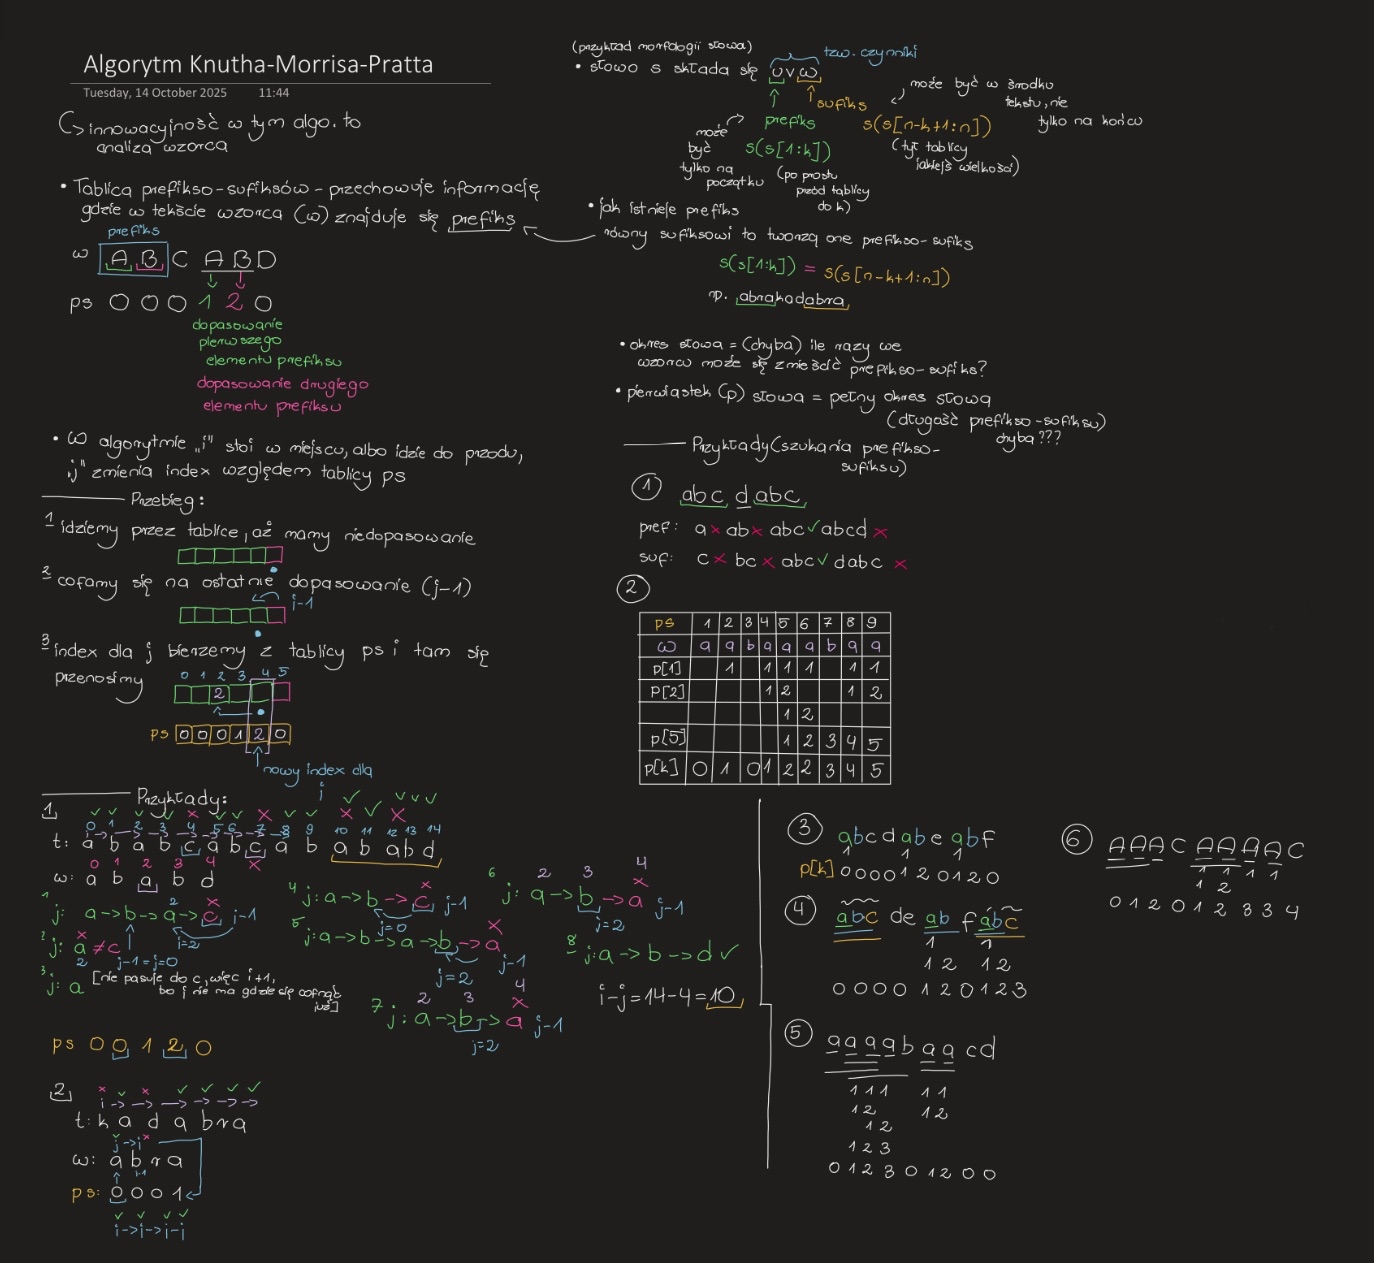 Algorytm Knutha-Morrisa-Pratta
Tuesday, 14 October 2025 11:44
innowacyjność w tym algo. to
analiza wzorca
• Tablica prefikso-sufiksów - przechowuje informację
gdzie w tekście wzorca (w) znajduje się prefiks
prefiks
w A B C A B D
ps 0 0 0 1 2 0
dopasowanie
pierwszego
elementu prefiksu
dopasowanie drugiego
elementu prefiksu
• W algorytmie „i" stoi w miejscu, albo idzie do przodu,
„j" zmienia index względem tablicy ps
Przebieg:
1 idziemy przez tablice, aż mamy niedopasowanie
2 cofamy się na ostatnie dopasowanie (j-1)
j-1
3 index dla j bierzemy z tablicy ps i tam się
przenosimy
0 1 2 3 4 5
2
ps 0 0 0 1 2 0
nowy index dla
j
Przykłady:
1.
0 1 2 3 4 5 6 7 8 9 10 11 12 13 14
t: a b a b c a b c a b a b a b d
0 1 2 3 4
w: a b a b d
1 j: a->b->a->c j-1
2
i=2
2 j: a ≠ c
2 j-1=j=0
3 j: a [nie pasuje do c, więc i+1,
bo j nie ma gdzie się cofnąć
już]
4 j: a->b->c j-1
j=0
5 j: a->b->a->b->a
j-1
j=2
6 2 3 4
j: a->b->a j-1
j=2
7 2 3 4
j: a->b->a j-1
j=2
8 j: a->b->d ✓
i-j=14-4=10
ps 0 0 1 2 0
2
t: k a d a b r a
w: a b r a
ps: 0 0 0 1
(przykład morfologii słowa)
• słowo s składa się uvw
tzw. czynniki
prefiks
sufiks
może
być
tylko na
początku
s(s[1:k])
(po prostu
przód tablicy
do k)
może być w środku
tekstu, nie
tylko na końcu
s(s[n-k+1:n])
(tył tablicy
jakiejś wielkości)
• jak istnieje prefiks
równy sufiksowi to tworzą one prefikso-sufiks
s(s[1:k]) = s(s[n-k+1:n])
np. abrakadabra
• okres słowa = (chyba) ile razy we
wzorcu może się zmieścić prefikso-sufiks?
• pierwiastek (p) słowa = pełny okres słowa
(długość prefikso-sufiksu)
chyba???
Przykłady (szukania prefikso-
sufiksu)
1 abc d abc
pref: a × ab × abc ✓ abcd ×
suf: c × bc × abc ✓ dabc ×
2
ps 1 2 3 4 5 6 7 8 9
w a a b a a a b a a
p[1] 1 1 1 1 1 1
p[2] 1 2 1 2
1 2
p[5] 1 2 3 4 5
p[k] 0 1 0 1 2 2 3 4 5
3 abcdabeabf
1 1 1
p[k] 0 0 0 0 1 2 0 1 2 0
4 abc de ab f abc
1 1
1 2 1 2
0 0 0 0 1 2 0 1 2 3
5 a a a a b a a c d
1 1 1 1 1
1 2 1 2
1 2
1 2 3
0 1 2 3 0 1 2 0 0
6 A A A C A A A A C
1 1 1 1
1 2
0 1 2 0 1 2 3 3 4